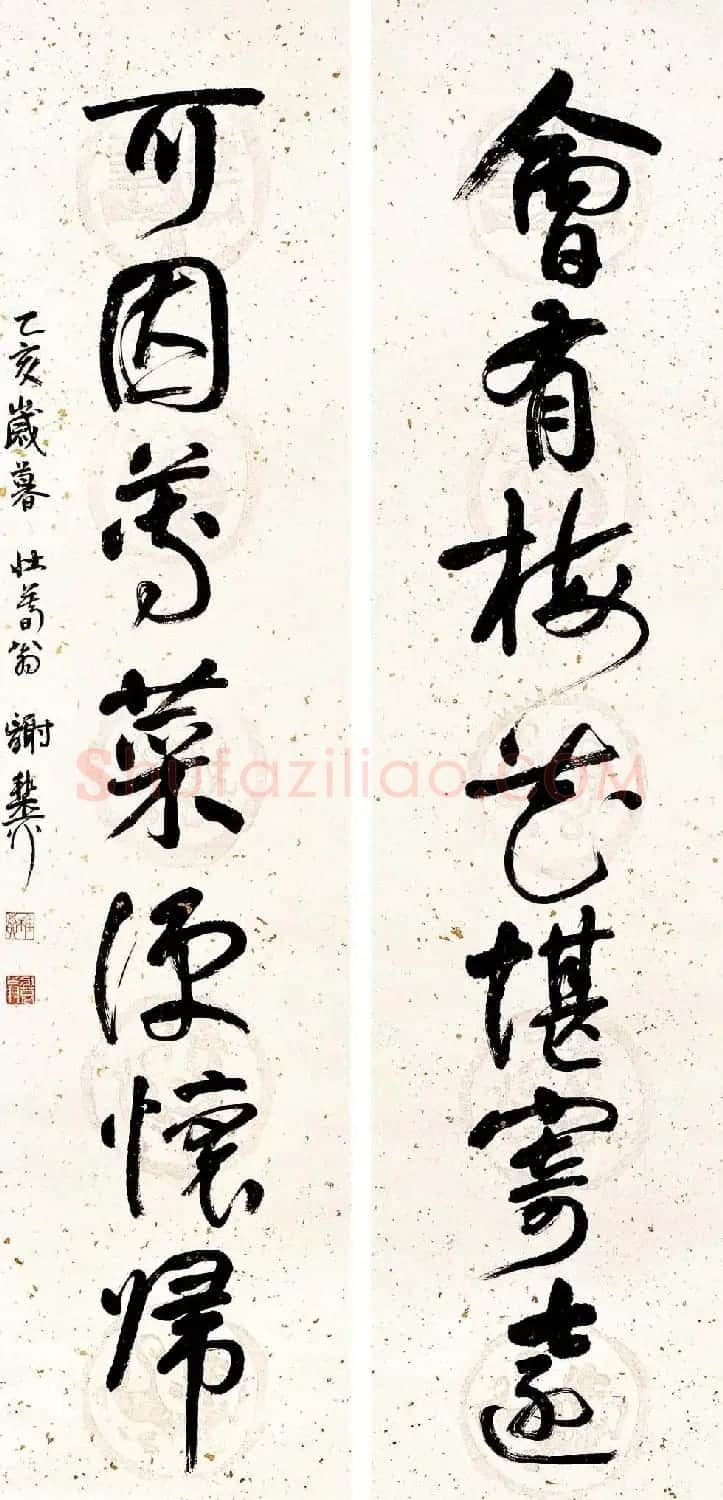 會有梅花堪寄遠
可因蓴菜便懷歸
乙亥歲暮 壯暮翁 謝稚柳
Shufaziliao.COM